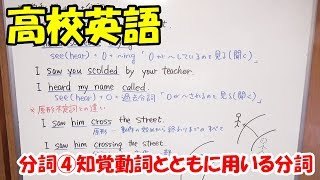 高校英語
see(hear) + O + ~ing 「Oが~しているのを見る(聞く)」
I saw you scolded by your teacher.
I heard my name called.
see(hear) + O + 過去分詞 「Oが~されるのを見る(聞く)」
*原形不定詞との違い
I saw him cross the street.
I saw him crossing the street.
分詞④知覚動詞とともに用いる分詞